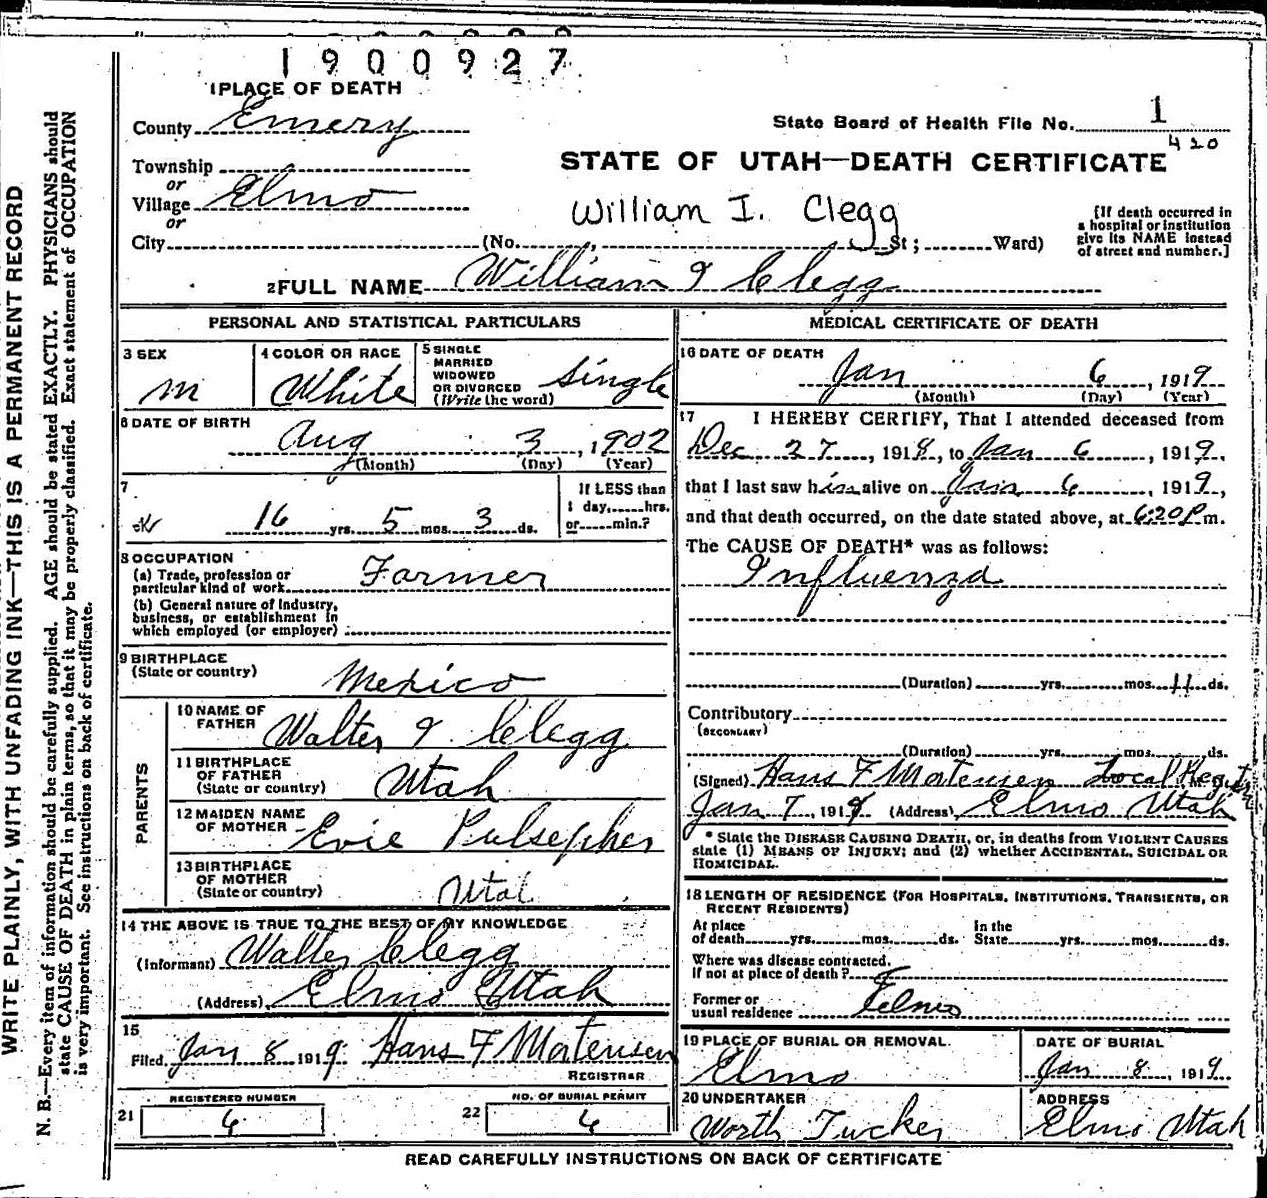 1900927
1 PLACE OF DEATH
County Emery
State Board of Health File No. 1
420
Township
or
Village Elmo
or
STATE OF UTAH—DEATH CERTIFICATE
William I. Clegg
City (No. , St; Ward)
[If death occurred in
a hospital or institution
give its NAME instead
of street and number.]
2 FULL NAME William I Clegg
PERSONAL AND STATISTICAL PARTICULARS
3 SEX
m
4 COLOR OR RACE
White
5 SINGLE
MARRIED
WIDOWED
OR DIVORCED
(Write the word)
Single
6 DATE OF BIRTH
Aug 3, 1902
(Month) (Day) (Year)
7
16 yrs. 5 mos. 3 ds.
If LESS than
1 day, hrs.
or min.?
8 OCCUPATION
(a) Trade, profession or
particular kind of work Farmer
(b) General nature of Industry,
business, or establishment in
which employed (or employer)
9 BIRTHPLACE
(State or country)
Mexico
PARENTS
10 NAME OF
FATHER
Walter I. Clegg
11 BIRTHPLACE
OF FATHER
(State or country)
Utah
12 MAIDEN NAME
OF MOTHER Evie Pulsepher
13 BIRTHPLACE
OF MOTHER
(State or country)
Utah
14 THE ABOVE IS TRUE TO THE BEST OF MY KNOWLEDGE
(Informant) Walter Clegg
(Address) Elmo Utah
15
Filed Jan 8 1919 Hans F Mortensen
REGISTRAR
REGISTERED NUMBER
21 6
NO. OF BURIAL PERMIT
22 6
MEDICAL CERTIFICATE OF DEATH
16 DATE OF DEATH
Jan 6, 1919
(Month) (Day) (Year)
17 I HEREBY CERTIFY, That I attended deceased from
Dec 27, 1918, to Jan 6, 1919,
that I last saw him alive on Jan 6, 1919,
and that death occurred, on the date stated above, at 6:20 P.m.
The CAUSE OF DEATH* was as follows:
Influenza
(Duration) yrs. mos. 11 ds.
Contributory
(SECONDARY)
(Duration) yrs. mos. ds.
(Signed) Hans F Mortensen Local Registrar
Jan 7, 1919 (Address) Elmo Utah
* State the DISEASE CAUSING DEATH, or, in deaths from VIOLENT CAUSES
state (1) MEANS OF INJURY; and (2) whether ACCIDENTAL, SUICIDAL OR
HOMICIDAL.
18 LENGTH OF RESIDENCE (FOR HOSPITALS, INSTITUTIONS, TRANSIENTS, OR
RECENT RESIDENTS)
At place
of death yrs. mos. ds.
In the
State yrs. mos. ds.
Where was disease contracted,
If not at place of death?
Former or
usual residence Elmo
19 PLACE OF BURIAL OR REMOVAL.
Elmo
DATE OF BURIAL
Jan 8, 1919
20 UNDERTAKER
Worth Tucker
ADDRESS
Elmo Utah
READ CAREFULLY INSTRUCTIONS ON BACK OF CERTIFICATE
WRITE PLAINLY, WITH UNFADING INK—THIS IS A PERMANENT RECORD
N. B.—Every item of information should be carefully supplied. AGE should be stated EXACTLY. PHYSICIANS should
state CAUSE OF DEATH in plain terms, so that it may be properly classified. Exact statement of OCCUPATION
is very important. See instructions on back of certificate.